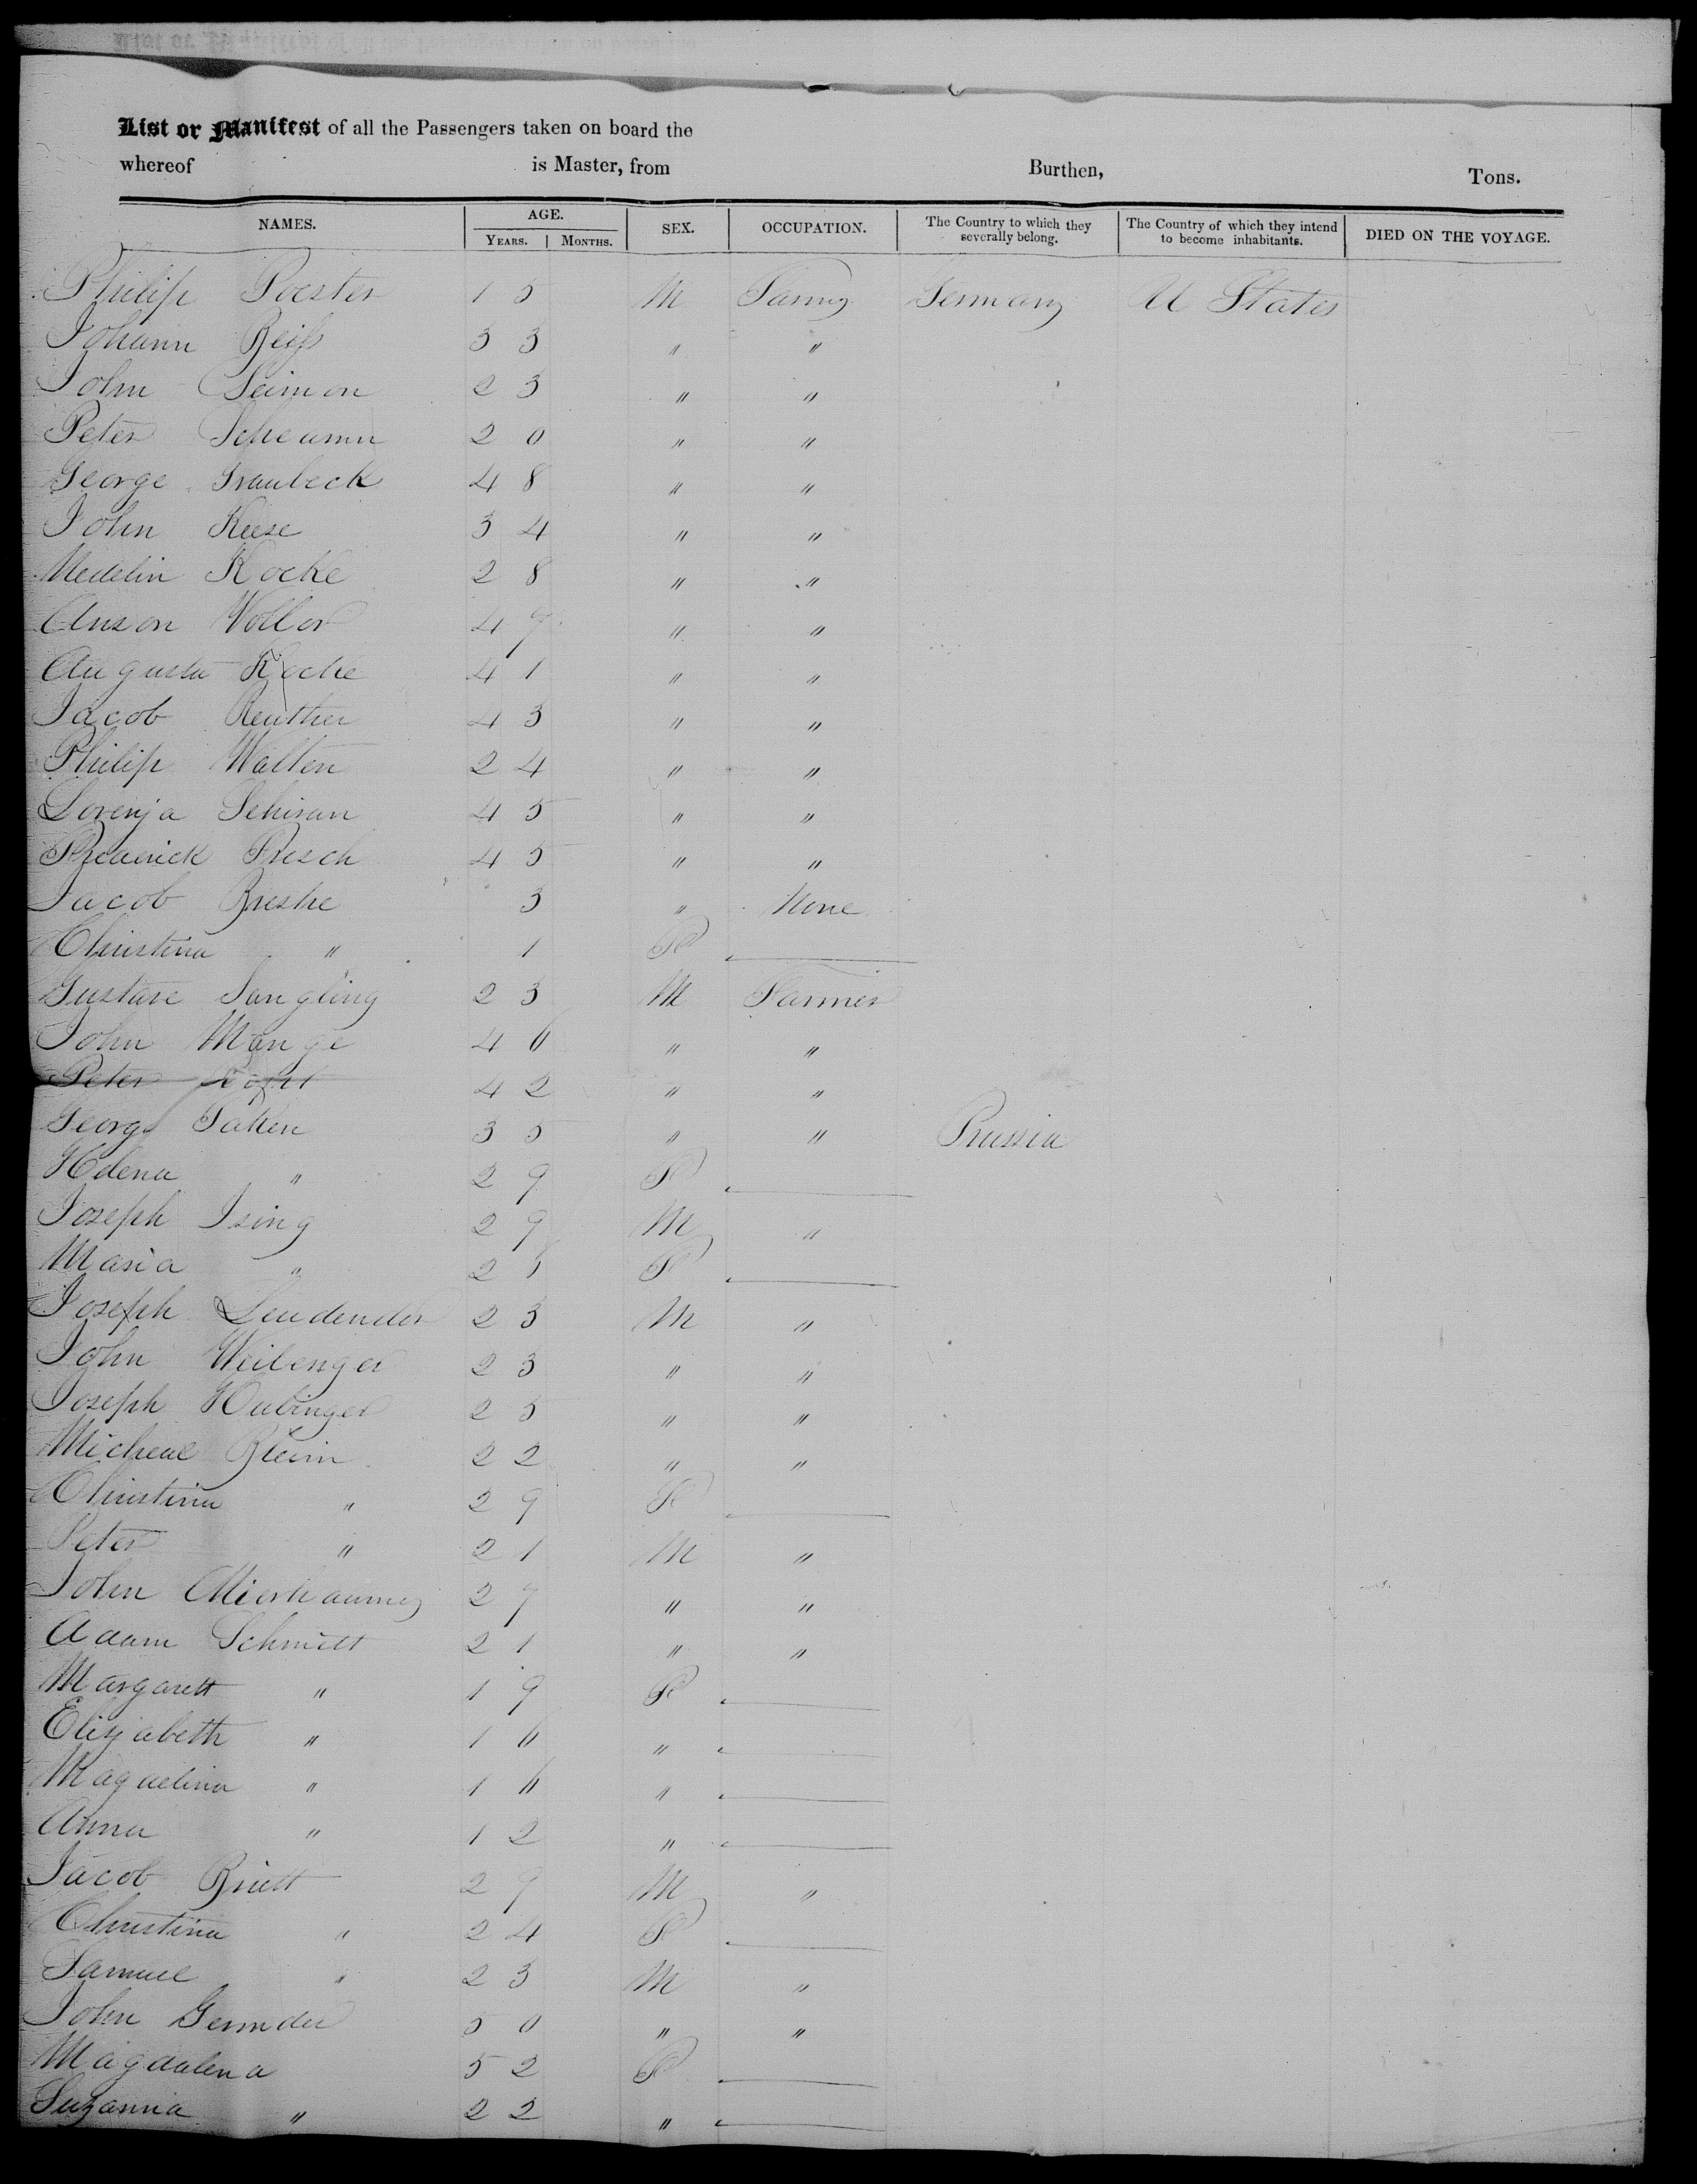 List or Manifest of all the Passengers taken on board the
whereof is Master, from Burthen, Tons.
NAMES. AGE. YEARS. MONTHS. SEX. OCCUPATION. The Country to which they severally belong. The Country of which they intend to become inhabitants. DIED ON THE VOYAGE.
Philip Foester 15 M Farmer Germany U States
Johann Reiss 33 " "
John Seimon 23 " "
Peter Scheamn 20 " "
George Graubeck 48 " "
John Keese 34 " "
Medelin Kocke 28 " "
Anson Vollor 49 " "
Augusta Kocke 41 " "
Jacob Reuther 43 " "
Philip Walten 24 " "
Lorenza Schiran 45 " "
Frederick Frisch 45 " "
Jacob Breshe 3 " None
Christina " 1 F
Gustave Jungling 23 M Farmer
John Mange 46 " "
Peter 42 " "
George Faken 35 " " Prussia
Helena " 29 F
Joseph Ising 29 M "
Maria " 25 F
Joseph Leudendor 23 M "
John Weilenger 23 " "
Joseph Hubinger 25 " "
Micheal Bleim 22 " "
Christina " 29 F
Peter " 21 M "
John 27 " "
Adam Schmitt 21 " "
Margarett " 19 F
Elizabeth " 16 "
Magdelina " 16 "
Anna " 12 "
Jacob Briett 29 M "
Christina " 24 F
Samuel " 23 M "
John Gemnder 50 " "
Magdalena 52 F
Suzanna " 22 "